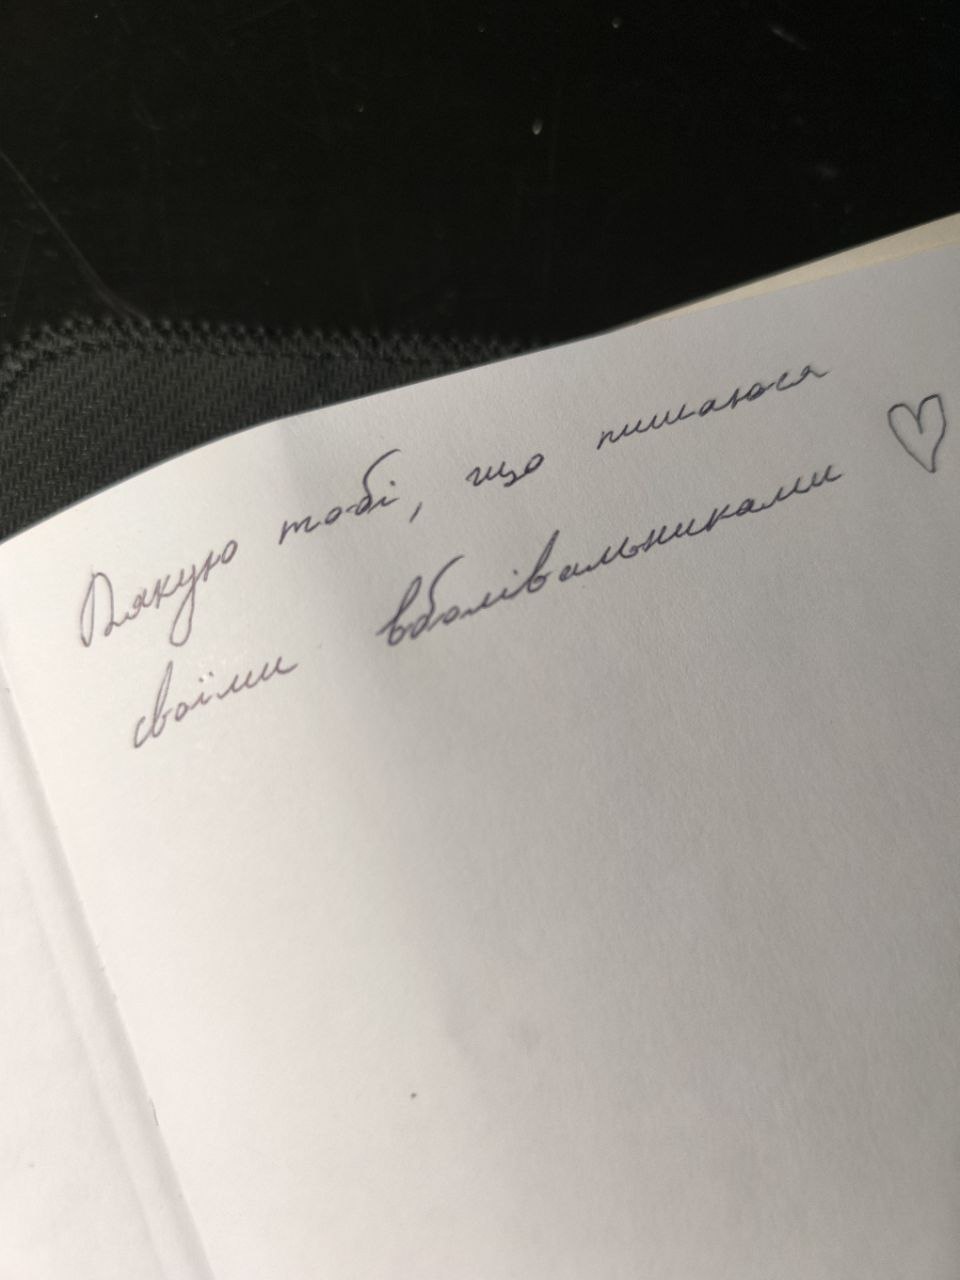 Дякую тобі, що пишаюся
своїми вболівальниками ♡